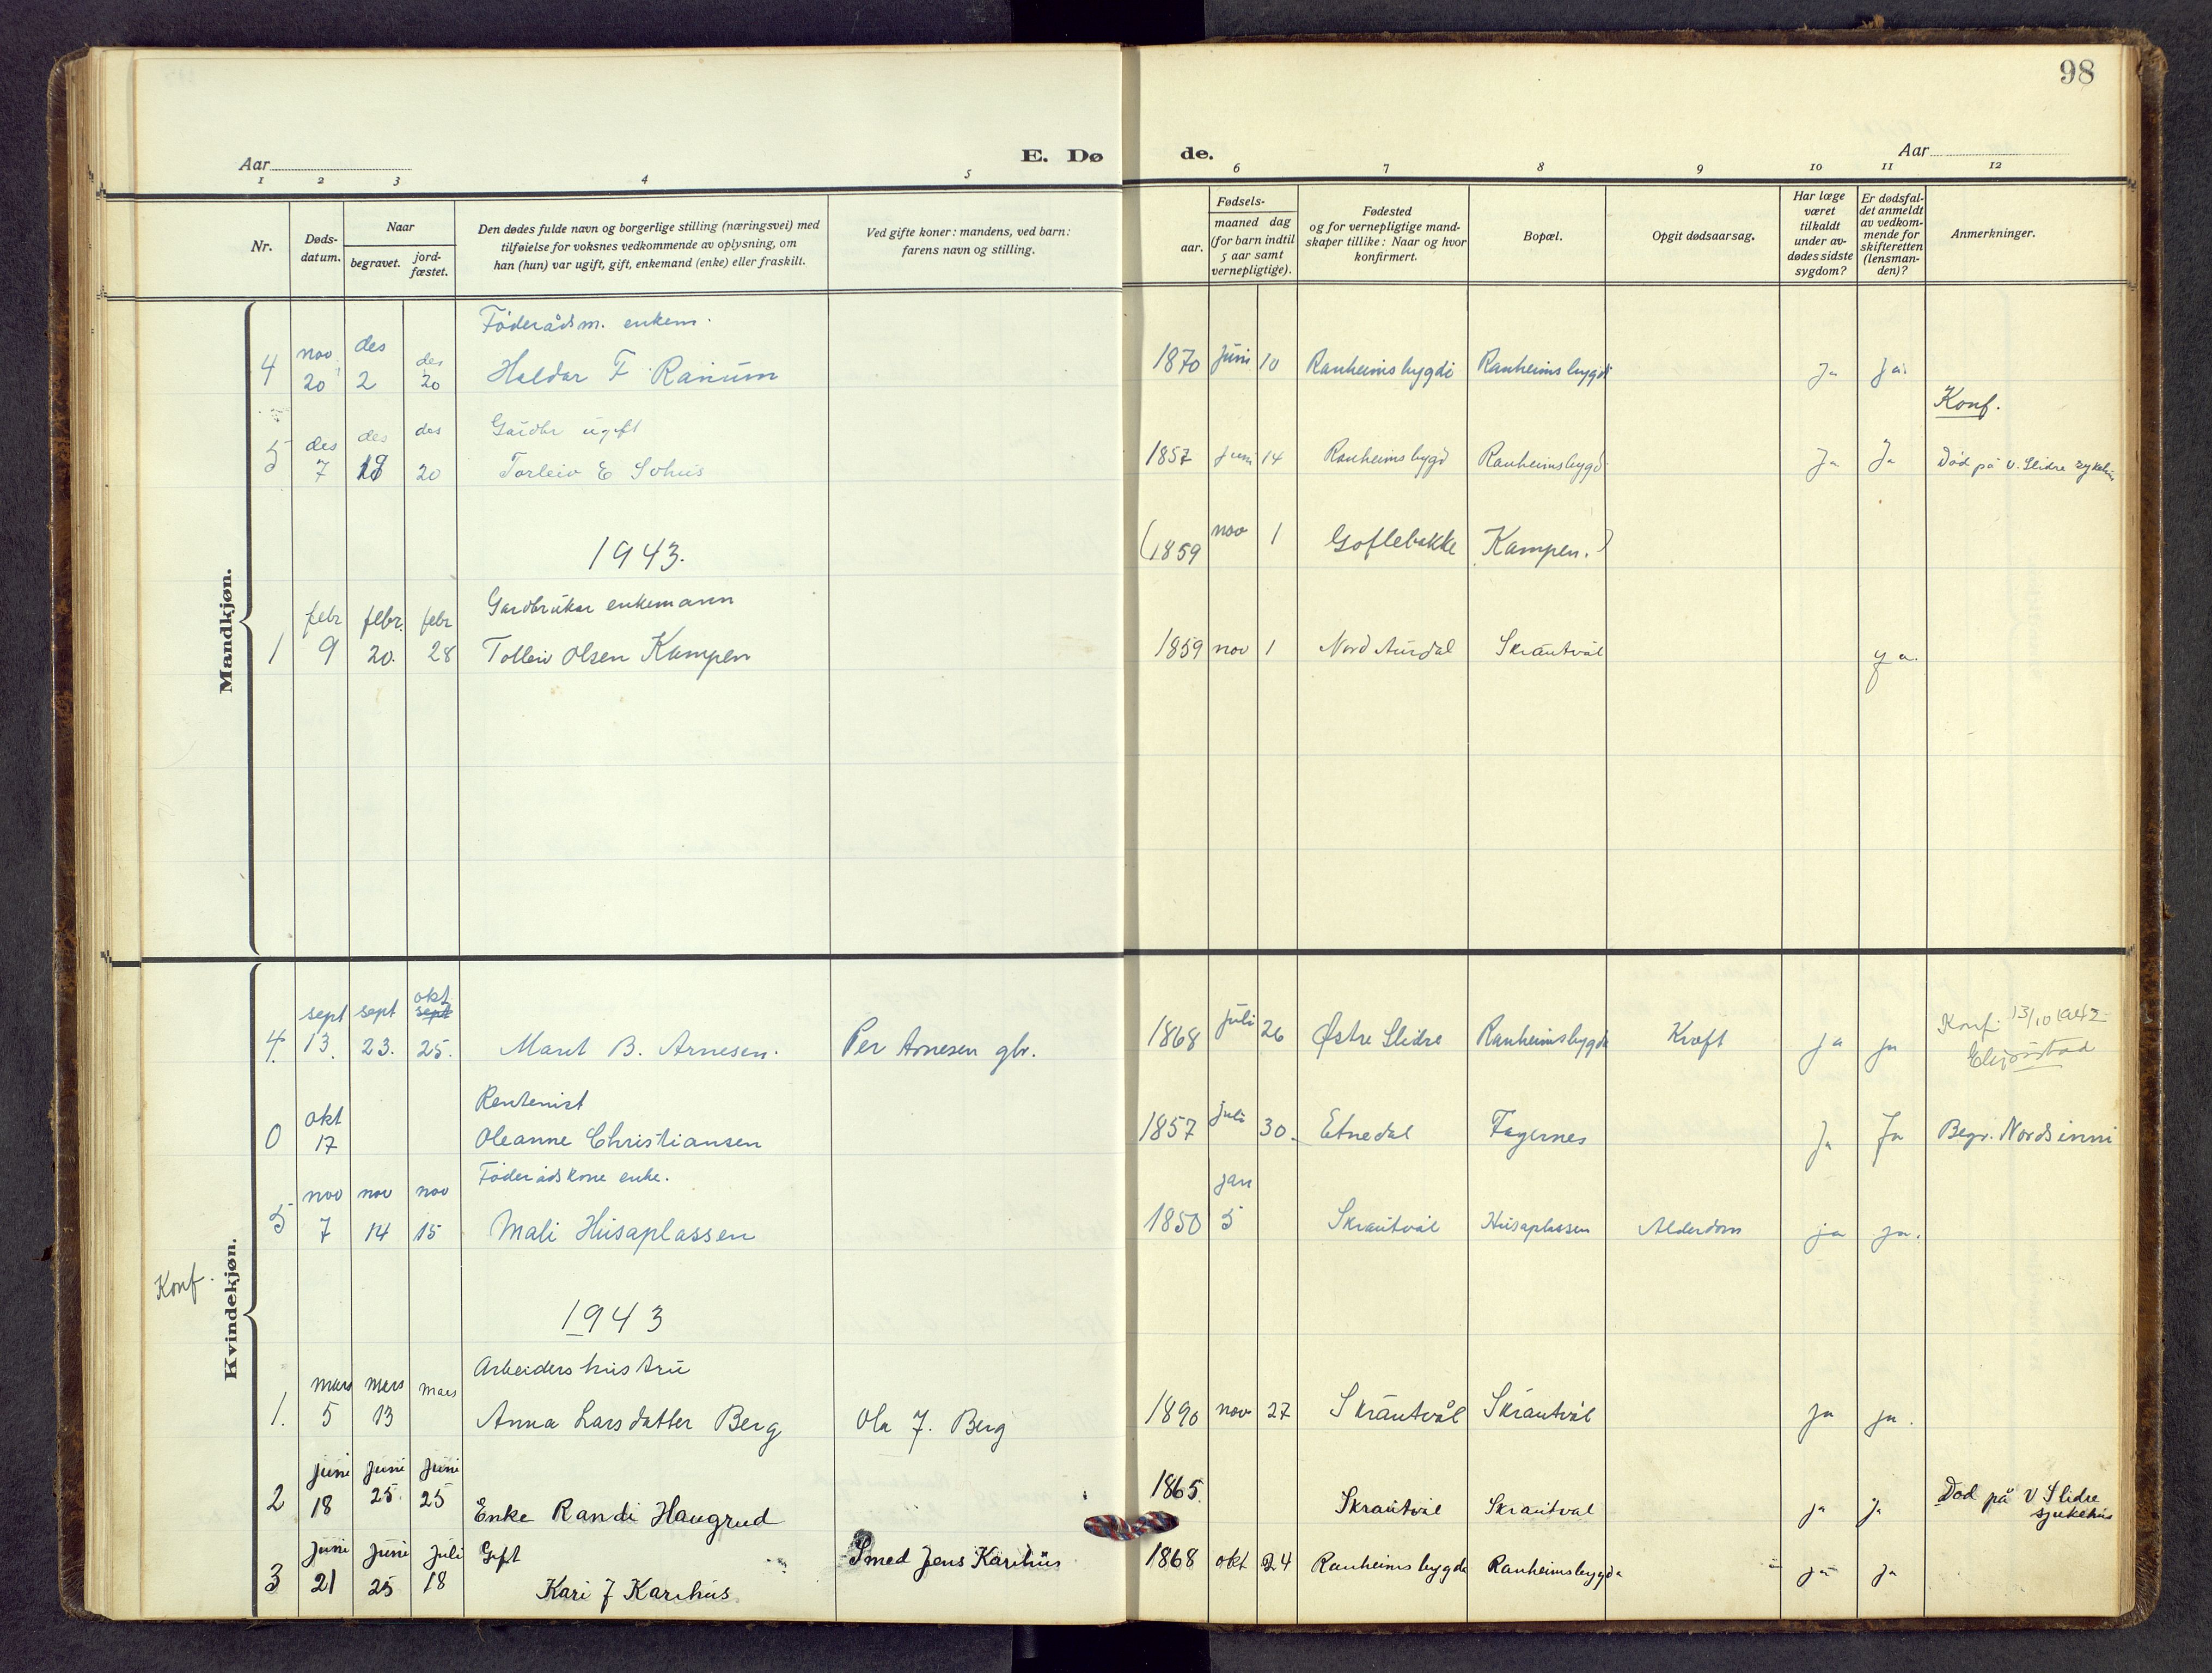 98
Aar
E. Døde.
Aar
1 2 3 4 5 6 7 8 9 10 11 12
Nr.
Døds-
datum.
Naar
begravet.
jord-
fæstet.
Den dødes fulde navn og borgerlige stilling (næringsvei) med
tilføielse for voksnes vedkommende av oplysning, om
han (hun) var ugift, gift, enkemand (enke) eller fraskilt.
Ved gifte koner: mandens, ved barn:
farens navn og stilling.
Fødsels-
aar.
maaned dag
(for barn indtil
5 aar samt
vernepligtige).
Fødested
og for vernepligtige mand-
skaper tillike: Naar og hvor
konfirmert.
Bopæl.
Opgit dødsaarsag.
Har læge
været
tilkaldt
under av-
dødes sidste
sygdom?
Er dødsfal-
det anmeldt
av vedkom-
mende for
skifteretten
(lensman-
den)?
Anmerkninger.
Mandkjøn.
Föderådsm. enkem.
4 nov 20 des 2 des 20 Haldor F Ranum 1870 juni 10 Ranheimsbygdi Ranheimsbygdi Ja Ja
Konf.
Gardbr ugift
5 des 7 des 19 des 20 Torleiv E Sohus 1857 juni 14 Ranheimsbygd Ranheimsbygd Ja Ja Död på V. Slidre sykehus
1943. (1859 nov 1 Goflebakke Kampen.)
Gardbrukar enkemann
1 febr 9 febr. 20. febr 28 Tolleiv Olsen Kampen 1859 nov 1 Nord Aurdal Skrautvål ja.
Kvindekjøn.
4. sept 13. sept 23. sept okt 25. Marit B. Arnesen. Per Arnesen gbr. 1868 juli 26 Østre Slidre Ranheimsbygdi Kreft ja ja Konf. 13/10 1942
Rentenist
0 okt 17 Oleanne Christiansen 1857 juli 30. Etnedal Fagernes Ja Ja Begr. Nordsinni
Föderådskone enke.
5 nov 7 nov 14 nov 15 Mali Husaplassen 1850 jan 5 Skrautvål Husaplassen Alderdom ja ja.
Konf.
1943
Arbeiders hustru
1. mars 5 mars 13 mars Anna Larsdatter Berg Ola J. Berg 1890 nov 27 Skrautvål Skrautvål ja ja.
2 juni 18 juni 25. juni 25 Enke Randi Haugrud 1865. Skrautvål Skrautvål ja ja Död på V Slidre
sjukehus
Gift
3 juni 21 juni 25 juli 18 Kari J Karihus Smed Jens Karihus 1868 okt 24 Ranheimsbygda Ranheimsbygda ja ja